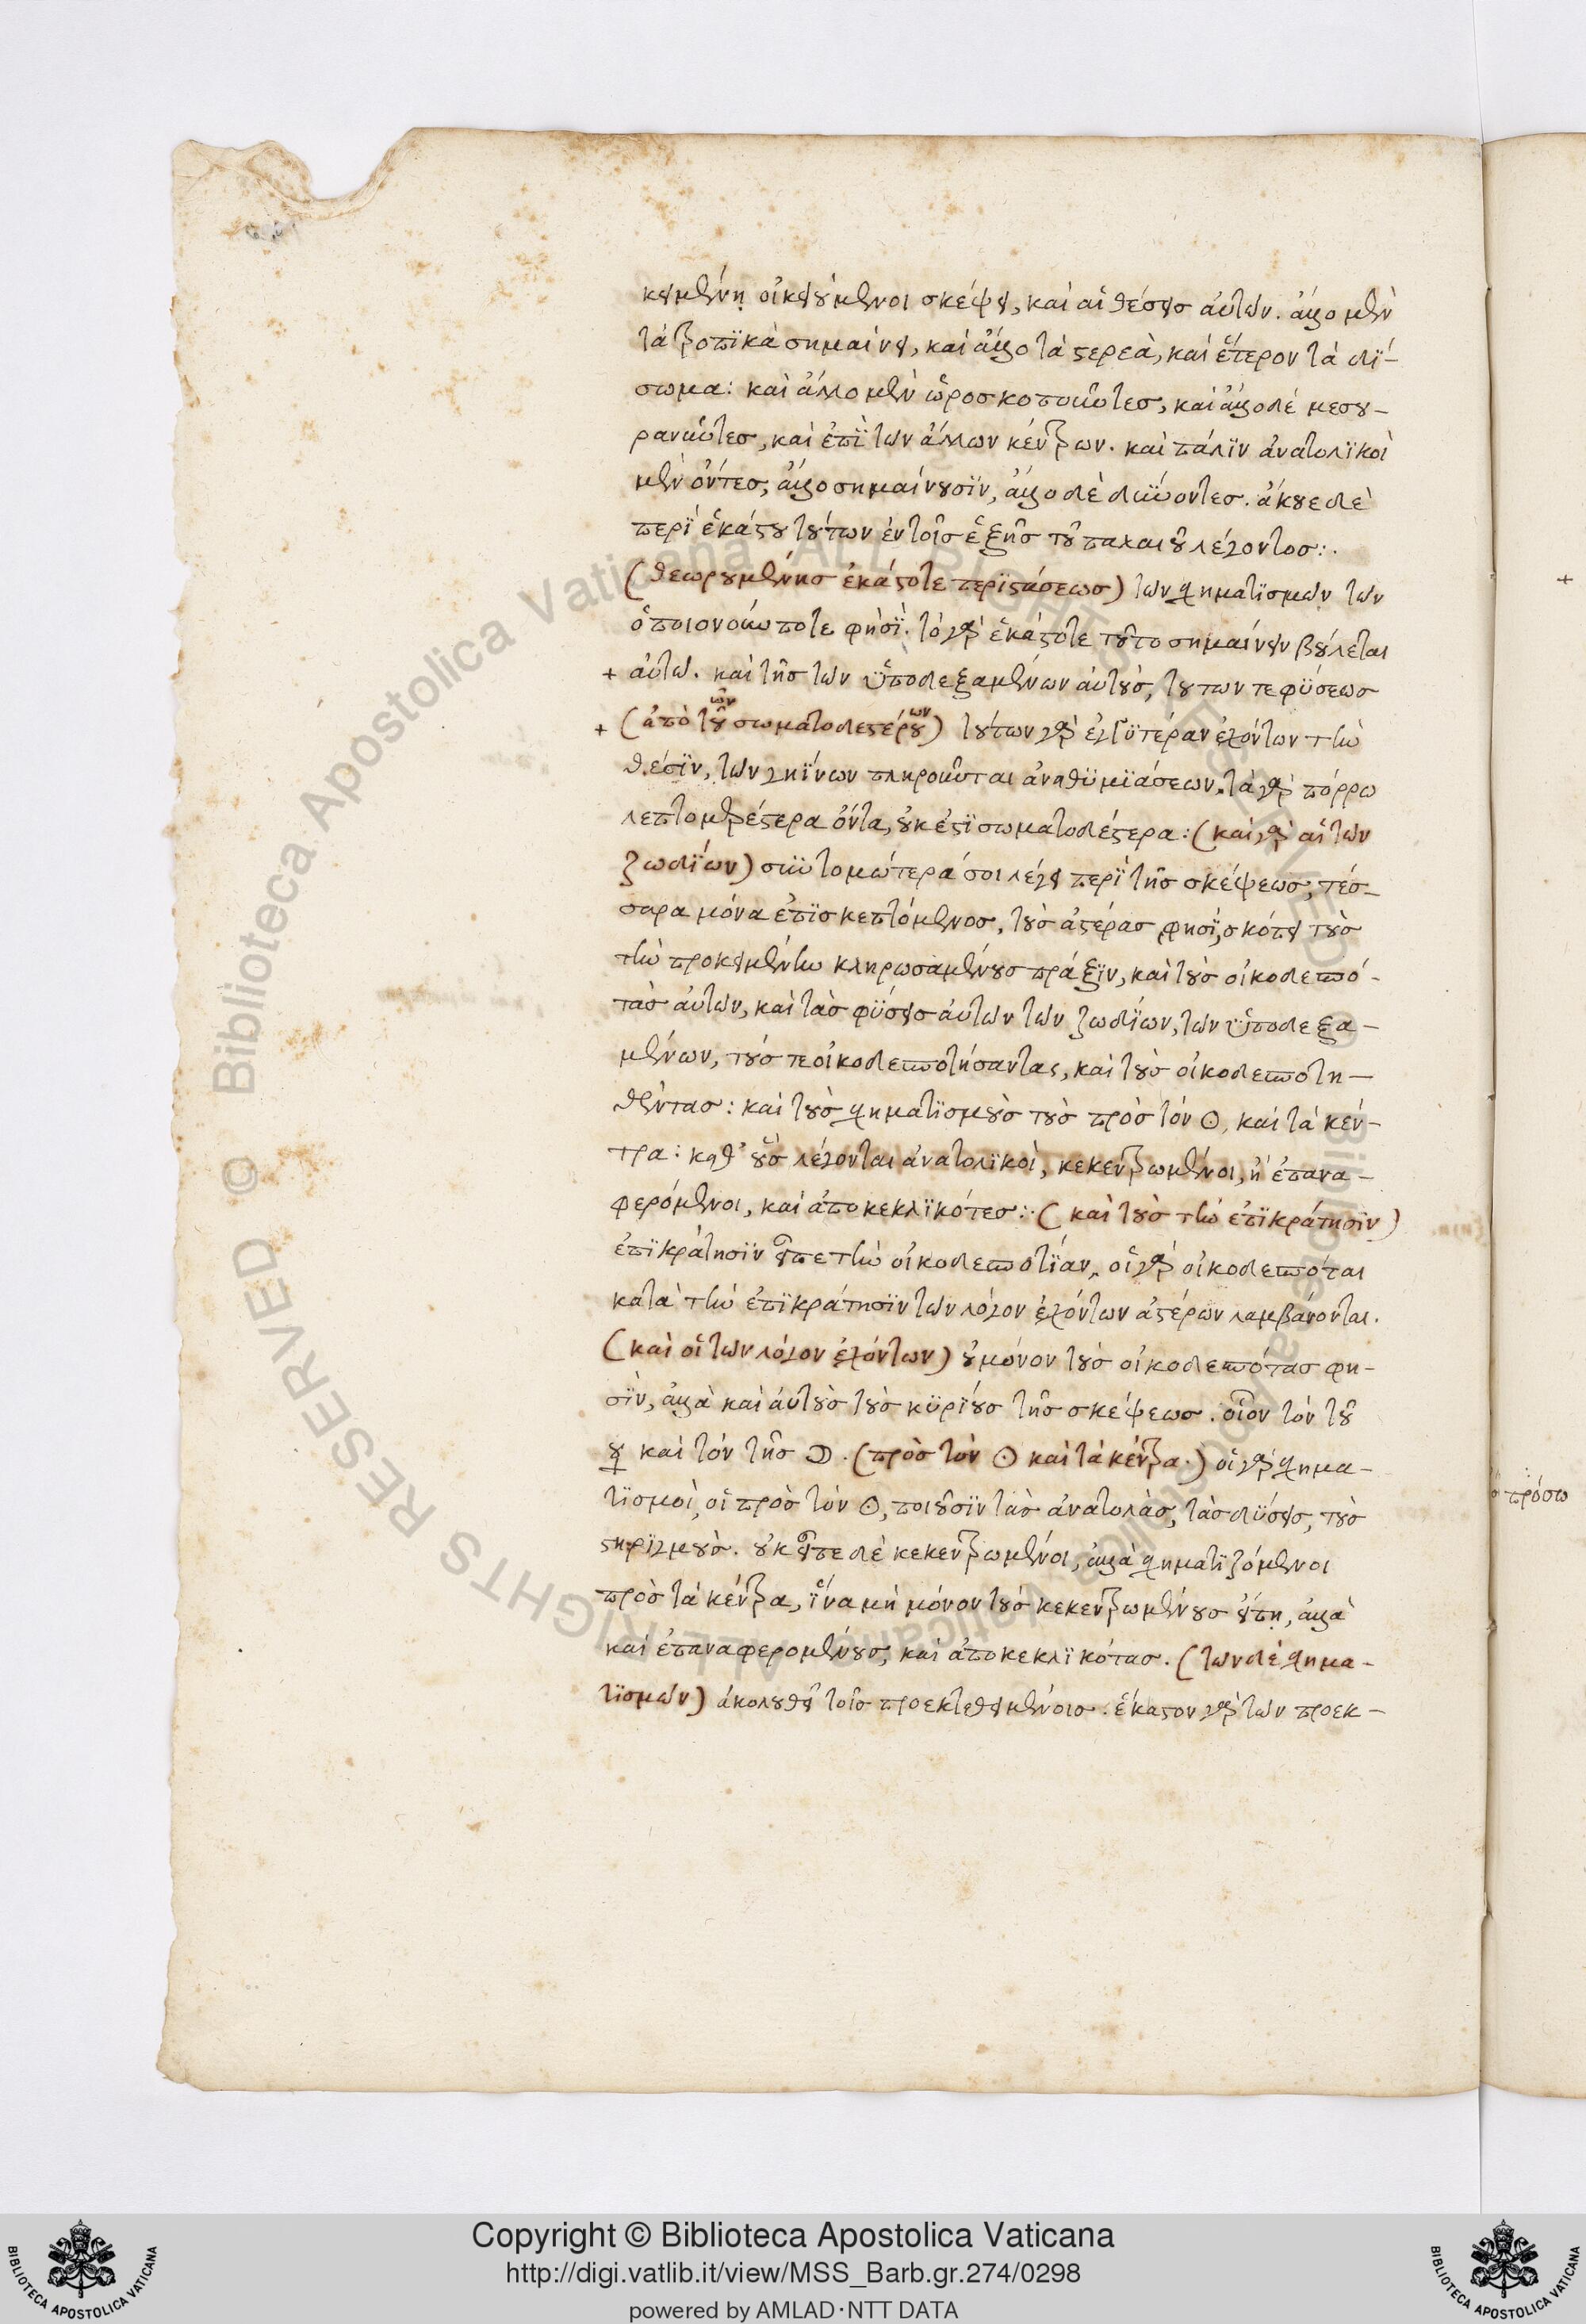 κειμένῃ οἰκειούμενοι σκέψει, καὶ αἱ θέσεις αὐτῶν. ἄλλο μὲν
τὰ τροπϊκὰ σημαίνει, καὶ ἄλλο τὰ στερεὰ, καὶ ἕτερον τὰ δί-
σωμα: καὶ ἄλλο μὲν ὡροσκοποῦντες, καὶ ἄλλο δὲ μεσου-
ρανοῦντες, καὶ ἐπὶ τῶν ἄλλων κέντρων. καὶ πάλϊν ἀνατολϊκοὶ
μὲν ὄντες, ἄλλο σημαίνουσϊν, ἄλλο δὲ δύνοντες. ἄκουε δὲ
περὶ ἑκάστου τούτων ἐν τοῖς ἑξῆς τοῦ παλαιοῦ λέγοντος:.
(θεωρουμένης ἑκάστοτε περϊστάσεως) τῶν σχηματϊσμῶν τῶν
ὁποιονοῦν ποτε φησϊ. τὸ γὰρ ἑκάστοτε τοῦτο σημαίνειν βούλεται
+ αὐτῶ. καὶ τῆς τῶν ὑποδεξαμένων αὐτοὺς, τούτων τε φύσεως
+ (ἀπὸ τοῦ σωματοδεστέρου) τούτων γὰρ ἐγγϋτέραν ἐχόντων τὴν
ῶν ων
θέσϊν, τῶν γηΐνων πληροῦνται ἀναθυμϊάσεων. τὰ γὰρ πόρρω
λεπτομερέστερα ὄντα, οὐκ ἐστὶ σωματοδέστερα: (καὶ γὰρ αἱ τῶν
ζωδίων) συντομώτερά σοι λέγει περὶ τῆς σκέψεως, τέσ-
σαρα μόνα ἐπϊσκεπτόμενος, τοὺς ἀστέρας φησϊ, σκόπει τοὺς
τὴν προκειμένην κληρωσαμένους πράξϊν, καὶ τοὺς οἰκοδεσπό-
τας αὐτῶν, καὶ τὰς φύσεις αὐτῶν τῶν ζωδίων, τῶν ὑποδεξα-
μένων, τούς τε οἰκοδεσποτήσαντας, καὶ τοὺς οἰκοδεσποτη-
θέντας: καὶ τοὺς σχηματϊσμοὺς τοὺς πρὸς τὸν ☉, καὶ τὰ κέν-
τρα: καθ' οὓς λέγονται ἀνατολϊκοὶ, κεκεντρωμένοι, ἢ ἐπανα-
φερόμενοι, καὶ ἀποκεκλϊκότες:. (καὶ τοὺς τὴν ἐπϊκράτησϊν)
ἐπϊκράτησϊν εἶπε τὴν οἰκοδεσποτίαν, οἱ γὰρ οἰκοδεσπόται
κατὰ τὴν ἐπϊκράτησϊν τῶν λόγον ἐχόντων ἀστέρων λαμβάνονται.
(καὶ οἱ τῶν λόγον ἐχόντων) οὐ μόνον τοὺς οἰκοδεσπότας φη-
σϊν, ἀλλὰ καὶ αὐτοὺς τοὺς κϋρίους τῆς σκέψεως. οἷον τὸν τοῦ
καὶ τὸν τῆς ☽. (πρὸς τὸν ☉ καὶ τὰ κέντρα.) οἱ γὰρ σχημα-
τϊσμοὶ, οἱ πρὸς τὸν ☉, ποιοῦσϊν τὰς ἀνατολὰς, τὰς δύσεις, τοὺς
στηρϊγμοὺς. οὐκ εἶπε δὲ κεκεντρωμένοι, ἀλλὰ σχηματϊζόμενοι
πρὸς τὰ κέντρα, ἵνα μὴ μόνον τοὺς κεκεντρωμένους εἴπῃ, ἀλλὰ
καὶ ἐπαναφερομένους, καὶ ἀποκεκλϊκότας. (τῶν δὲ σχημα-
τϊσμῶν) ἀκολουθεῖ τοῖς προεκτεθειμένοις. ἕκαστον γὰρ τῶν προεκ-
+
πρόσω
Copyright © Biblioteca Apostolica Vaticana
http://digi.vatlib.it/view/MSS_Barb.gr.274/0298
powered by AMLAD·NTT DATA
BIBLIOTECA APOSTOLICA VATICANA
BIBLIOTECA APOSTOLICA VATICANA
Biblioteca Apostolica Vaticana ALL RIGHTS RESERVED ©
Biblioteca Apostolica Vaticana ALL RIGHTS RESERVED ©